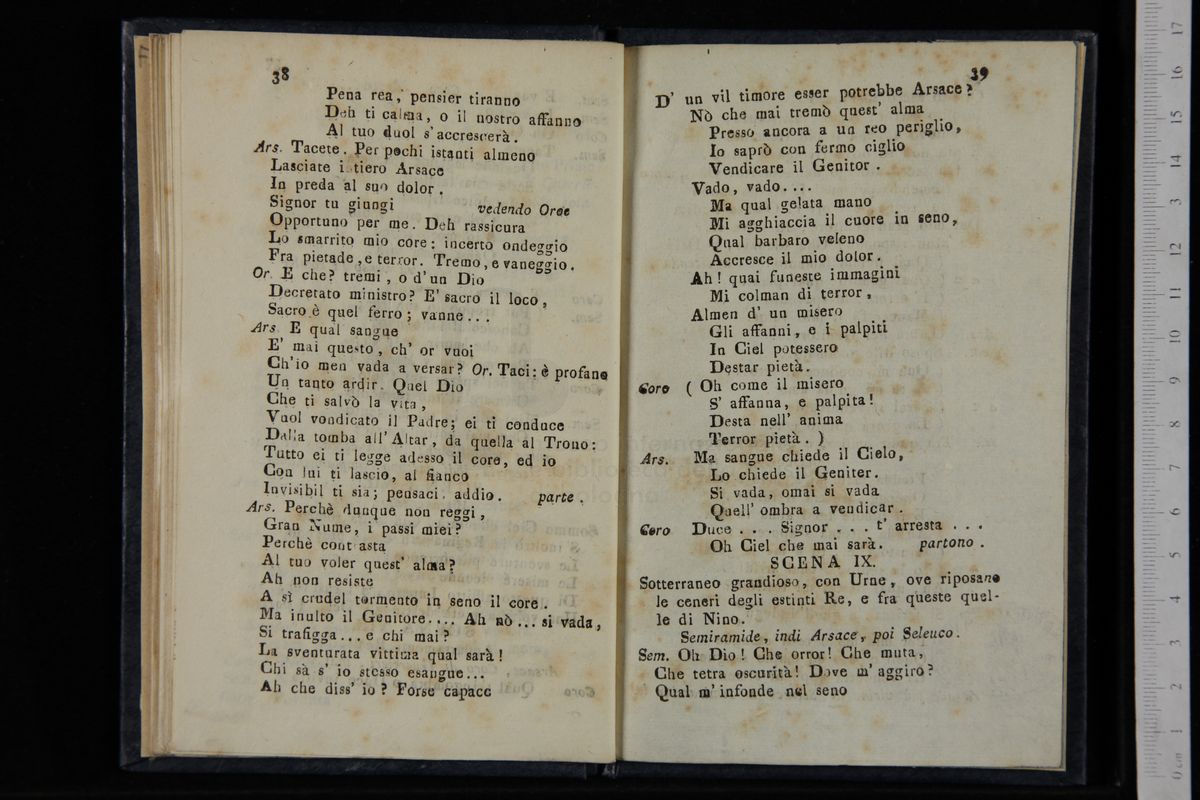 38
Pena rea, pensier tiranno
Deh ti calma, o il nostro affanno
Al tuo duol s'accrescerà.
Ars. Tacete. Per pochi istanti almeno
Lasciate i tiero Arsace
In preda al suo dolor.
Signor tu giungi vedendo Oroe
Opportuno per me. Deh rassicura
Lo smarrito mio core: incerto ondeggio
Fra pietade, e terror. Tremo, e vaneggio.
Or. E che? tremi, o d'un Dio
Decretato ministro? E' sacro il loco,
Sacro è quel ferro; vanne...
Ars. E qual sangue
E' mai questo, ch' or vuoi
Ch'io men vada a versar? Or. Taci: è profano
Un tanto ardir. Quel Dio
Che ti salvò la vita,
Vuol vondicato il Padre; ei ti conduce
Dalla tomba all'Altar, da quella al Trono:
Tutto ei ti legge adesso il core, ed io
Con lui ti lascio, al fianco
Invisibil ti sia; pensaci. addio. parte.
Ars. Perchè dunque non reggi,
Gran Nume, i passi miei?
Perchè contrasta
Al tuo voler quest' alma?
Ah non resiste
A sì crudel tormento in seno il core.
Ma inulto il Genitore.... Ah nò... si vada,
Si trafigga... e chi mai?
La sventurata vittima qual sarà!
Chi sà s' io stesso esangue...
Ah che diss' io? Forse capace
39
D' un vil timore esser potrebbe Arsace?
Nò che mai tremò quest' alma
Presso ancora a un reo periglio,
Io saprò con fermo ciglio
Vendicare il Genitor.
Vado, vado....
Ma qual gelata mano
Mi agghiaccia il cuore in seno,
Qual barbaro veleno
Accresce il mio dolor.
Ah! quai funeste immagini
Mi colman di terror,
Almen d' un misero
Gli affanni, e i palpiti
In Ciel potessero
Destar pietà.
Coro ( Oh come il misero
S' affanna, e palpita!
Desta nell' anima
Terror pietà. )
Ars. Ma sangue chiede il Cielo,
Lo chiede il Geniter.
Si vada, omai si vada
Quell' ombra a vendicar.
Coro Duce... Signor... t' arresta...
Oh Ciel che mai sarà. partono.
SCENA IX.
Sotterraneo grandioso, con Urne, ove riposano
le ceneri degli estinti Re, e fra queste quel-
le di Nino.
Semiramide, indi Arsace, poi Seleuco.
Sem. Oh Dio! Che orror! Che muta,
Che tetra oscurità! Dove m' aggiro?
Qual m' infonde nel seno
17
16
15
14
13
12
11
10
9
8
7
6
5
4
3
2
1
0 cm